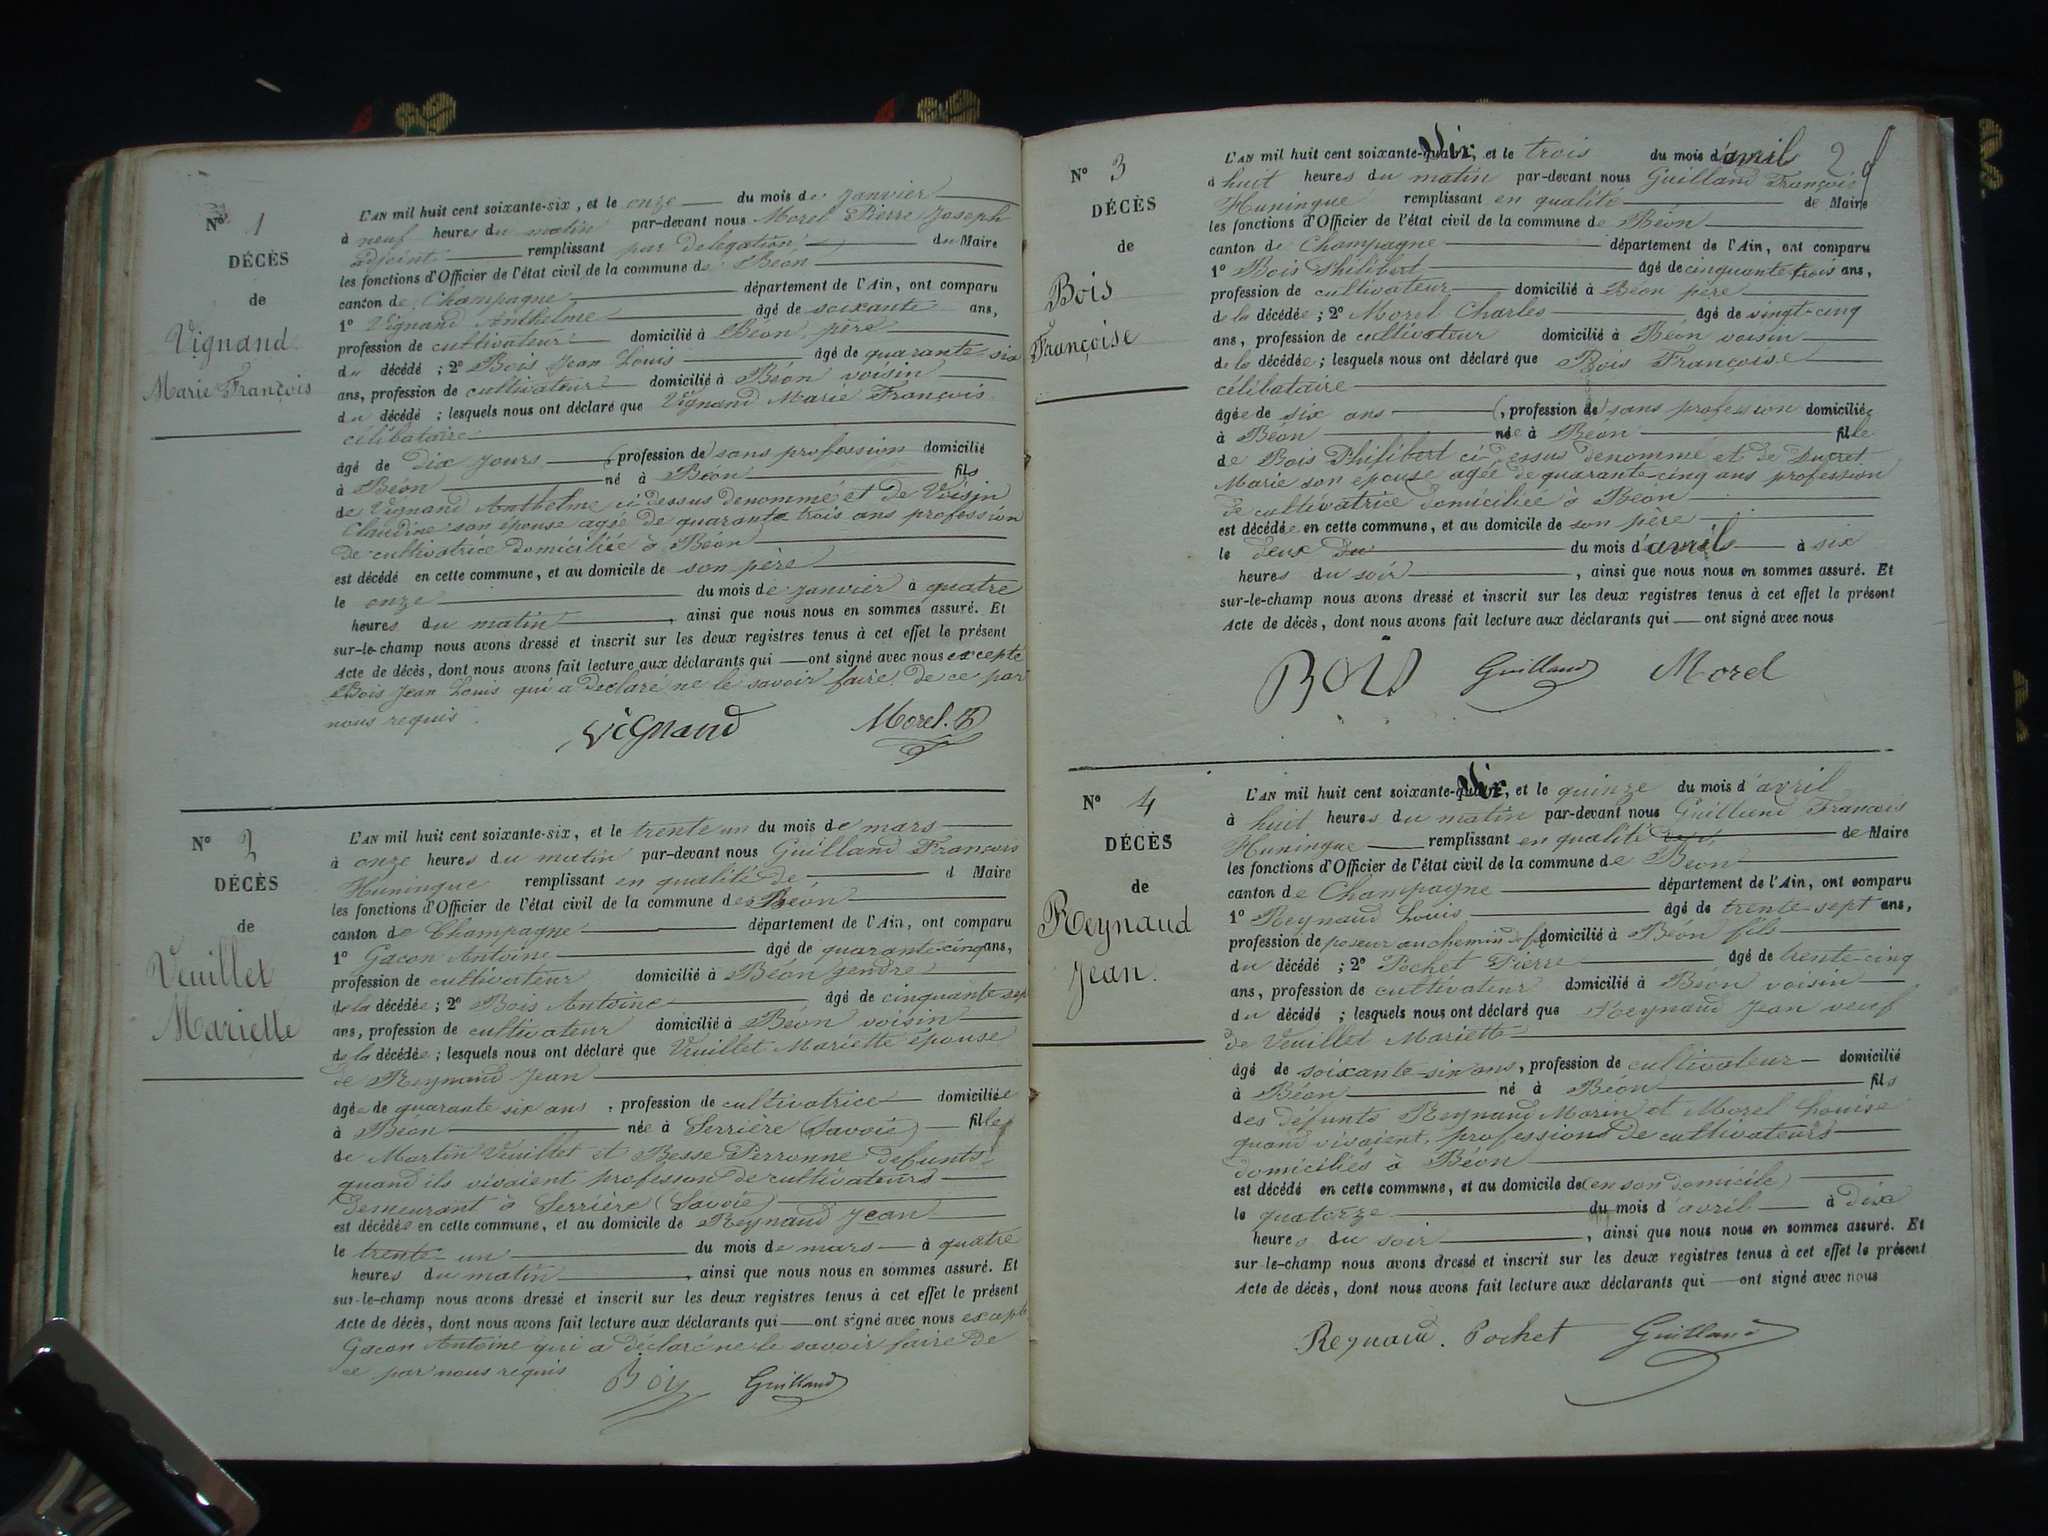 Nº 1
DÉCÈS
de
Vignand
Marie François
L'AN mil huit cent soixante-six, et le onze du mois de janvier
à neuf heures du matin par-devant nous Morel Pierre Joseph
adjoint remplissant par délégation du Maire
les fonctions d'Officier de l'état civil de la commune de Béon
canton de Champagne département de l'Ain, ont comparu
1º Vignand Anthelme âgé de soixante ans,
profession de cultivateur domicilié à Béon père
du décédé ; 2º Bois Jean Louis âgé de quarante six
ans, profession de cultivateur domicilié à Béon voisin
du décédé ; lesquels nous ont déclaré que Vignand Marie François
célibataire
âgé de dix jours (profession de) sans profession domicilié
à Béon né à Béon fils
de Vignand Anthelme ci dessus denommé et de Voisin
Claudine son épouse agée de quarante trois ans profession
de cultivatrice domiciliée à Béon
est décédé en cette commune, et au domicile de son père
le onze du mois de janvier à quatre
heures du matin, ainsi que nous nous en sommes assuré. Et
sur-le-champ nous avons dressé et inscrit sur les deux registres tenus à cet effet le présent
Acte de décès, dont nous avons fait lecture aux déclarants qui ont signé avec nous excepté
Bois Jean Louis qui a declaré ne le savoir faire de ce par
nous requis.
Vignand Morel
Nº 2
DÉCÈS
de
Veuillet
Mariette
L'AN mil huit cent soixante-six, et le trente un du mois de mars
à onze heures du matin par-devant nous Guilland François
Huningue remplissant en qualité de d Maire
les fonctions d'Officier de l'état civil de la commune de Béon
canton de Champagne département de l'Ain, ont comparu
1º Gacon Antoine âgé de quarante-cinq ans,
profession de cultivateur domicilié à Béon gendre
de la décédée ; 2º Bois Antoine âgé de cinquante sep
ans, profession de cultivateur domicilié à Béon voisin
de la décédée ; lesquels nous ont déclaré que Veuillet Mariette épouse
de Reynaud Jean
âgée de quarante six ans, profession de cultivatrice domiciliée
à Béon née à Serrière (Savoie) fille
de Martin Veuillet et Besse Perronne defunts
quand ils vivaient profession de cultivateurs
demeurant à Serrière (Savoie)
est décédée en cette commune, et au domicile de Reynaud Jean
le trente-un du mois de mars à quatre
heures du matin, ainsi que nous nous en sommes assuré. Et
sur-le-champ nous avons dressé et inscrit sur les deux registres tenus à cet effet le présent
Acte de décès, dont nous avons fait lecture aux déclarants qui ont signé avec nous excepté
Gacon Antoine qui a déclaré ne le savoir faire de
ce par nous requis
Guilland
2
Nº 3
DÉCÈS
de
Bois
Françoise
L'AN mil huit cent soixante-six, et le trois du mois d'avril
à huit heures du matin par-devant nous Guilland François
Huningue remplissant en qualité de Maire
les fonctions d'Officier de l'état civil de la commune de Béon
canton de Champagne département de l'Ain, ont comparu
1º Bois Philibert âgé de cinquante trois ans,
profession de cultivateur domicilié à Béon père
de la décédée ; 2º Morel Charles âgé de vingt-cinq
ans, profession de cultivateur domicilié à Béon voisin
de la décédée ; lesquels nous ont déclaré que Bois Françoise
célibataire
âgée de six ans (, profession de) sans profession domiciliée
à Béon née à Béon fille
de Bois Philibert ci dessus denommé et de Ducret
Marie son epouse agée de quarante-cinq ans profession
de cultivatrice domiciliée à Béon
est décédée en cette commune, et au domicile de son père
le deux du du mois d'avril à six
heures du soir, ainsi que nous nous en sommes assuré. Et
sur-le-champ nous avons dressé et inscrit sur les deux registres tenus à cet effet le présent
Acte de décès, dont nous avons fait lecture aux déclarants qui ont signé avec nous
Bois Guilland Morel
Nº 4
DÉCÈS
de
Reynaud
Jean.
L'AN mil huit cent soixante-six, et le quinze du mois d'avril
à huit heures du matin par-devant nous Guilland François
Huningue remplissant en qualité de Maire
les fonctions d'Officier de l'état civil de la commune de Béon
canton de Champagne département de l'Ain, ont comparu
1º Reynaud Louis âgé de trente-sept ans,
profession de poseur au chemin de fer domicilié à Béon fils
du décédé ; 2º Pochet Pierre âgé de trente-cinq
ans, profession de cultivateur domicilié à Béon voisin
du décédé ; lesquels nous ont déclaré que Reynaud Jean veuf
de Veuillet Mariette
âgé de soixante-six ans, profession de cultivateur domicilié
à Béon né à Béon fils
des défunts Reynaud Marin et Morel Louise
quand vivaient, professions de cultivateurs
domiciliés à Béon
est décédé en cette commune, et au domicile de (en son domicile)
le quatorze du mois d'avril à dix
heures du soir, ainsi que nous nous en sommes assuré. Et
sur-le-champ nous avons dressé et inscrit sur les deux registres tenus à cet effet le présent
Acte de décès, dont nous avons fait lecture aux déclarants qui ont signé avec nous
Reynaud. Pochet Guilland